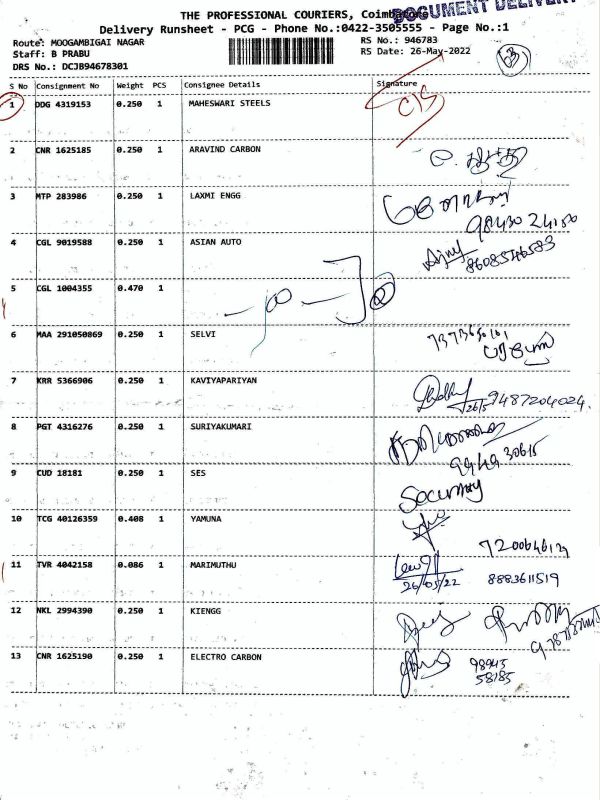 DOCUMENT DELIVERY
THE PROFESSIONAL COURIERS, Coimbatore
Delivery Runsheet - PCG - Phone No.:0422-3505555 - Page No.:1
Route: MOOGAMBIGAI NAGAR
RS No.: 946783
Staff: B PRABU
RS Date: 26-May-2022
63
DRS No.: DCJB94678301
S No Consignment No Weight PCS Consignee Details Signature
1 DDG 4319153 0.250 1 MAHESWARI STEELS
2 CNR 1625185 0.250 1 ARAVIND CARBON
3 MTP 283986 0.250 1 LAXMI ENGG
98430 24100
4 CGL 9019588 0.250 1 ASIAN AUTO
8608546583
5 CGL 1004355 0.470 1
6 MAA 291050869 0.250 1 SELVI
7373650101
7 KRR 5366906 0.250 1 KAVIYAPARIYAN
26/5 9487204024
8 PGT 4316276 0.250 1 SURIYAKUMARI
9 CUD 18181 0.250 1 SES
Security
10 TCG 40126359 0.408 1 YAMUNA
11 TVR 4042158 0.086 1 MARIMUTHU
26/05/22 8883611519
12 NKL 2994390 0.250 1 KIENGG
13 CNR 1625190 0.250 1 ELECTRO CARBON
98943
58185